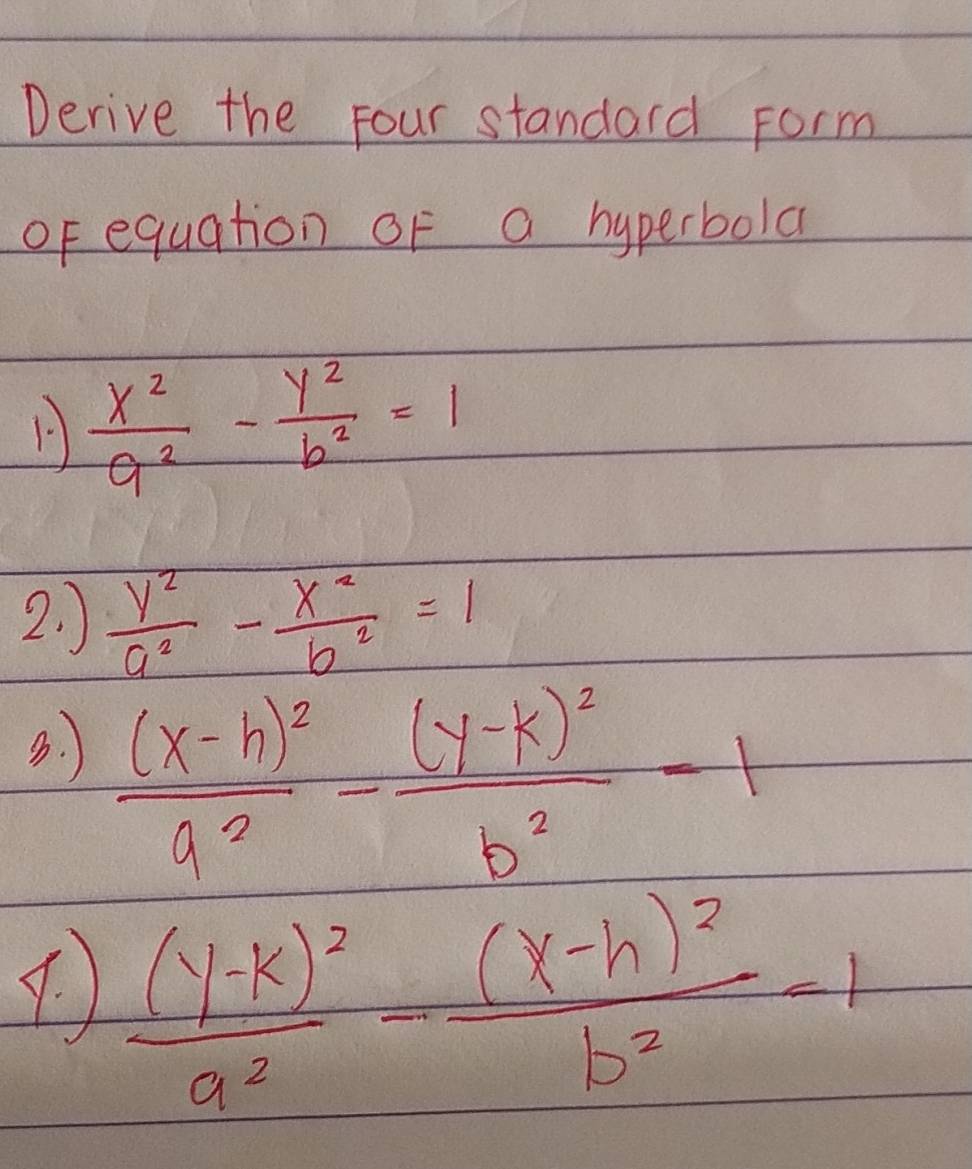 Derive the Four standard Form
OF equation OF a hyperbola
1.) x²/a² - y²/b² = 1
2.) y²/a² - x²/b² = 1
3.) (x-h)²/a² - (y-k)²/b² - 1
4.) (y-k)²/a² - (x-h)²/b² = 1